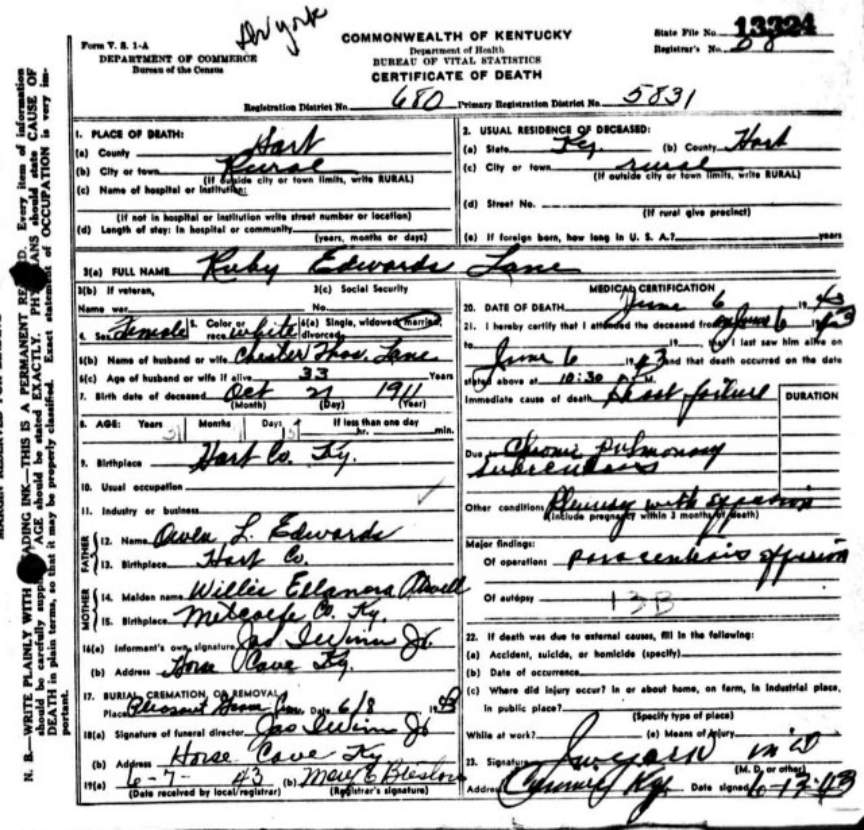 Dr york
Form V. S. 1-A
DEPARTMENT OF COMMERCE
Bureau of the Census
COMMONWEALTH OF KENTUCKY
Department of Health
BUREAU OF VITAL STATISTICS
CERTIFICATE OF DEATH
State File No. 13324
Registrar's No.
Registration District No. 680 Primary Registration District No. 5831
1. PLACE OF DEATH:
(a) County Hart
(b) City or town Rural
(If outside city or town limits, write RURAL)
(c) Name of hospital or institution:
(If not in hospital or institution write street number or location)
(d) Length of stay: In hospital or community
(years, months or days)
2. USUAL RESIDENCE OF DECEASED:
(a) State Ky. (b) County Hart
(c) City or town rural
(If outside city or town limits, write RURAL)
(d) Street No.
(If rural give precinct)
(e) If foreign born, how long in U. S. A.? years
3(a) FULL NAME Ruby Edwards Lane
3(b) If veteran,
Name war
3(c) Social Security
No.
4. Sex Female 5. Color or race white 6(a) Single, widowed, married, divorced
6(b) Name of husband or wife Chester Thos. Lane
6(c) Age of husband or wife if alive 33 Years
7. Birth date of deceased Oct 21 1911
(Month) (Day) (Year)
8. AGE: Years Months Days If less than one day
31 hr. min.
9. Birthplace Hart Co. Ky.
10. Usual occupation
11. Industry or business
FATHER
12. Name Owen L. Edwards
13. Birthplace Hart Co.
MOTHER
14. Maiden name Willie Ellanora
15. Birthplace Metcalfe Co. Ky.
16(a) Informant's own signature Jas
(b) Address Horse Cave Ky.
17. BURIAL, CREMATION, OR REMOVAL
Place Pleasant Cem. Date 6/8 1943
18(a) Signature of funeral director Jas
(b) Address Horse Cave Ky
19(a) 6-7-43 (b) Mary E
(Date received by local registrar) (Registrar's signature)
MEDICAL CERTIFICATION
20. DATE OF DEATH June 6 1943
21. I hereby certify that I attended the deceased from June 6 1943
to 19 , that I last saw him alive on
June 6 1943 and that death occurred on the date
stated above at 10:30 M.
Immediate cause of death Heart failure
DURATION
Due to Chronic Pulmonary
tuberculosis
Other conditions Pleurisy with
(Include pregnancy within 3 months of death)
Major findings:
Of operations
Of autopsy
13B
22. If death was due to external causes, fill in the following:
(a) Accident, suicide, or homicide (specify)
(b) Date of occurrence
(c) Where did injury occur? In or about home, on farm, in industrial place,
in public place?
(Specify type of place)
While at work? (e) Means of injury
23. Signature J W York M D
(M. D. or other)
Address Ky. Date signed 6-12-43
N. B.—WRITE PLAINLY WITH FADING INK—THIS IS A PERMANENT RECORD. Every item of information
should be carefully supplied. AGE should be stated EXACTLY. PHYSICIANS should state CAUSE OF
DEATH in plain terms, so that it may be properly classified. Exact statement of OCCUPATION is very im-
portant.